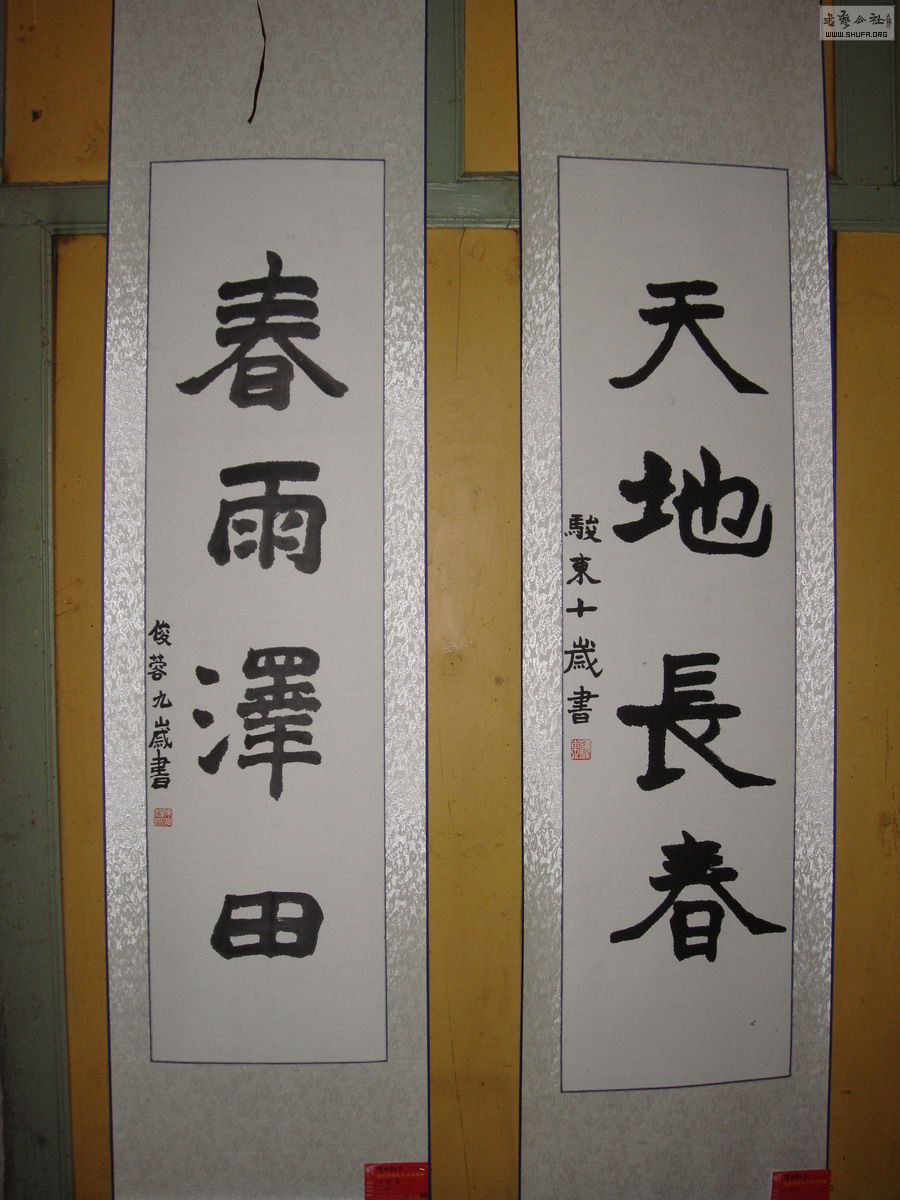 天地長春
駿東十歲書
春雨澤田
俊蓉九歲書
WWW.SHUFA.ORG